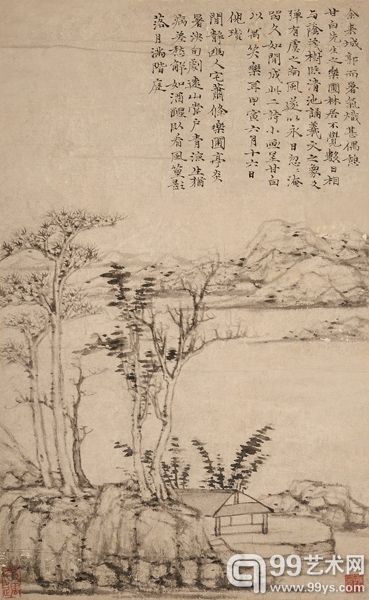 余來城郭而暑氣熾甚偶憩
甘白先生之樂圃林居不覺數日相
與蔭茂樹臨清池誦羲文之象爻
彈有虞之南風遂以永日忽忽淹
留久如間成此二詩小畫呈甘白
以寓笑樂耳甲寅六月十六日
倪瓚
閒靜幽人宅蕭條樂圃亭炎
暑 劇遠山當戶青涼生猶
病差愁解如酒醒臥看風篁影
落月滿階庭
99艺术网
www.99ys.com